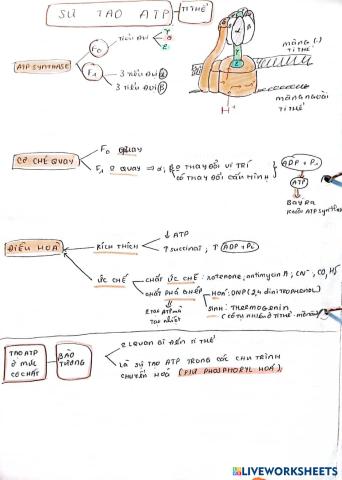 SỰ TẠO ATP TI THỂ
ATP SYNTHASE
F0 TIỂU ĐV
γ
ε
F1 3 TIỂU ĐV α
3 TIỂU ĐV β
MÀNG (-)
TI THỂ
H+
MÀNG NGOÀI
TI THỂ
CƠ CHẾ QUAY
F0 QUAY
F1 QUAY ⇒ α, β THAY ĐỔI VỊ TRÍ
THAY ĐỔI CẤU HÌNH
ADP + Pi
ATP
BAY RA
KHỎI ATP synthase
ĐIỀU HOÀ
KÍCH THÍCH
↓ ATP
↑ succinat, ↑ ADP + Pi
ỨC CHẾ
CHẤT ỨC CHẾ: rotenone, antimycin A, CN⁻, CO, H₂S
CHẤT PHÁ GHÉP
HOÁ: DNP (2,4 dinitrophenol)
SINH: Thermogenin
TẠO NHIỆT
TẠO ATP
Ở MỨC
CƠ CHẤT
BÀO
TƯƠNG
LIÊN QUAN ĐẾN TI THỂ
LÀ SỰ TẠO ATP TRONG CÁC CHU TRÌNH
CHUYỂN HOÁ (PƯ PHOSPHORYL HOÁ)
LIVEWORKSHEETS